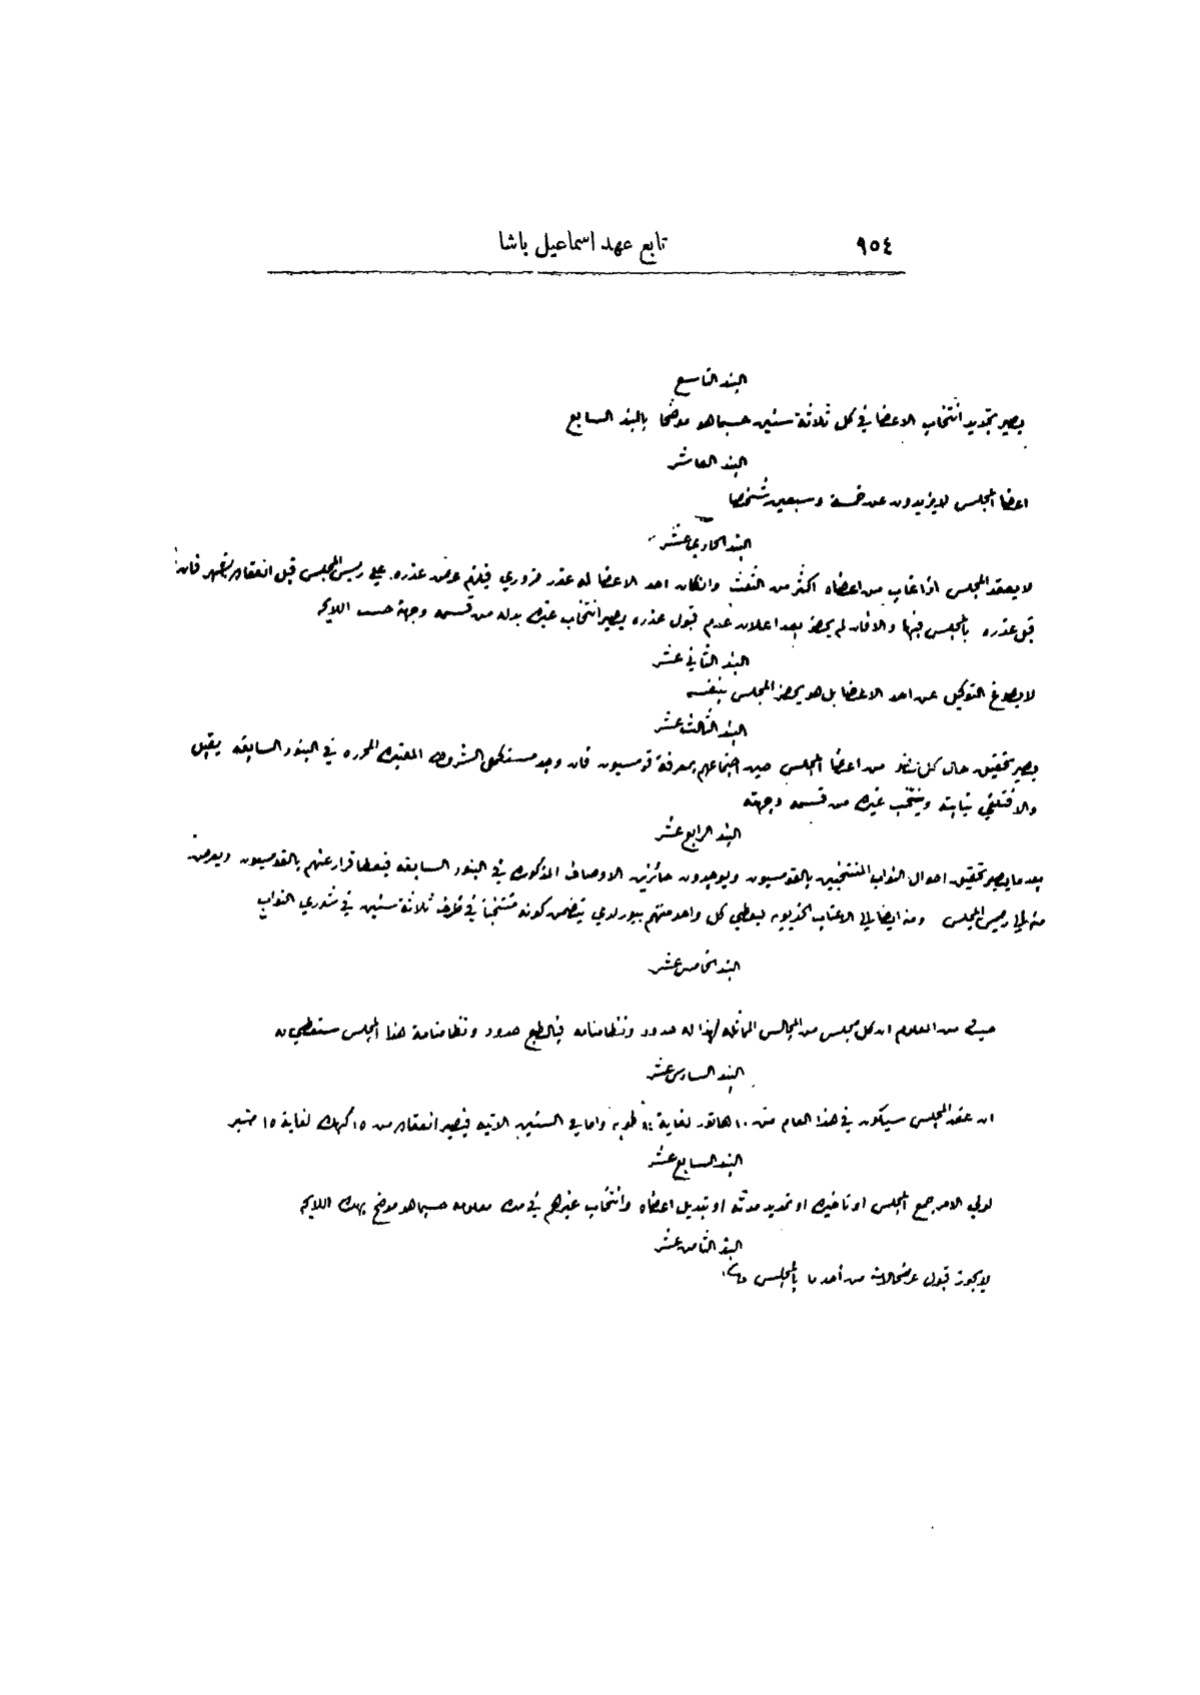 ٩٥٤
تابع عهد اسماعيل باشا
البند التاسع
يصير تجديد انتخاب الاعضا في كل ثلاثة سنين حسبما هو موضحا بالبند السابع
البند العاشر
اعضا المجلس لا يزيدون عن خمسة وسبعين شخصا
البند الحادي عشر
لا يعقد المجلس اذا غاب من اعضاه اكثر من الثلث وان كان احد الاعضا له عذر ضروري فيلزم عرض عذره على رئيس المجلس قبل انعقاده بشهر فان
قبل عذره بالمجلس فبها والا فان لم يحضر بعد اعلان عدم قبول عذره يصير انتخاب غيره بدله من قسمه وجهة حسب اللايحه
البند الثاني عشر
لا يصوغ التوكيل عن احد الاعضا بل هو يحضر المجلس بنفسه
البند الثالث عشر
يصير تحقيق حال كل نفر من اعضا المجلس حين اجتماعهم بمعرفة قومسيون فان وجد مستكمل الشروط المعتبره المحرره في البنود السابقه يقبل
والا فتلغي نيابته وينتخب غيره من قسمه وجهته
البند الرابع عشر
بعد ما يصير تحقيق احوال النواب المنتخبين بالقومسيون ويوجدون حائزين الاوصاف المذكوره في البنود السابقه فيعطا قرار عنهم بالقومسيون ويعرض
منه الي رئيس المجلس ومنه ايضا الي الاعتاب الخديويه ليعطي كل واحد منهم بيورلدي يتضمن كونه منتخبا في ظرف ثلاثة سنين في شوري النواب
البند الخامس عشر
حيث من المعلوم ان كل مجلس من المجالس المماثله لهذا له حدود ونظامنامه فبالطبع حدود ونظامنامة هذا المجلس ستعطي له
البند السادس عشر
ان عقد المجلس سيكون في هذا العام من ١٠ هاتور لغاية طوبه واما في السنين الاتيه فيصير انعقاده من ١٥ كيهك لغاية ١٥ امشير
البند السابع عشر
لولي الامر جمع المجلس او تاخيره او تمديد مدته او تبديل اعضاه وانتخاب غيرهم في مدة معلومه حسبما هو موضح بهذه اللايحه
البند الثامن عشر
لا يجوز قبول عرضحالات من أحد ما بالمجلس